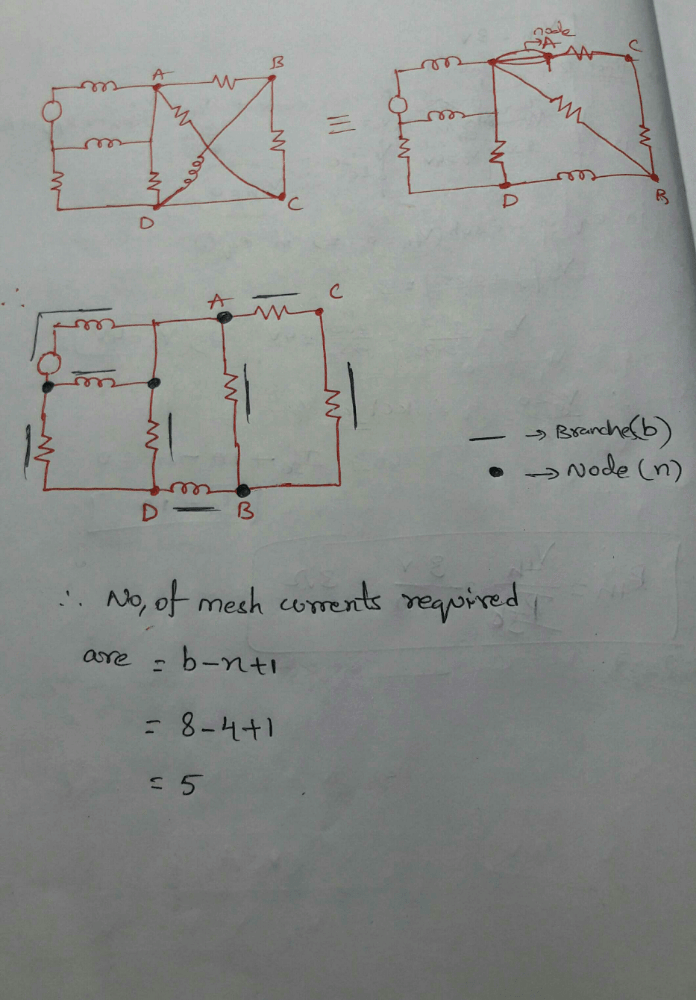 node
A
B
D
C
≡
A
C
D
B
∴
A
C
D
B
— → Branches(b)
• → Node (n)
∴ No, of mesh currents required
are = b-n+1
= 8-4+1
= 5